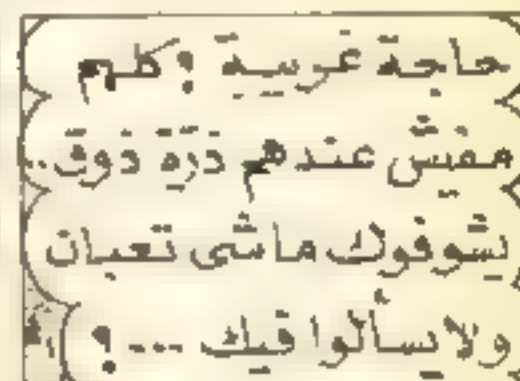 حاجة غريبة ! كلهم
مفيش عندهم ذرة ذوق ..
يشوفوك ماشى تعبان
ولا يسألوا فيك --- ؟